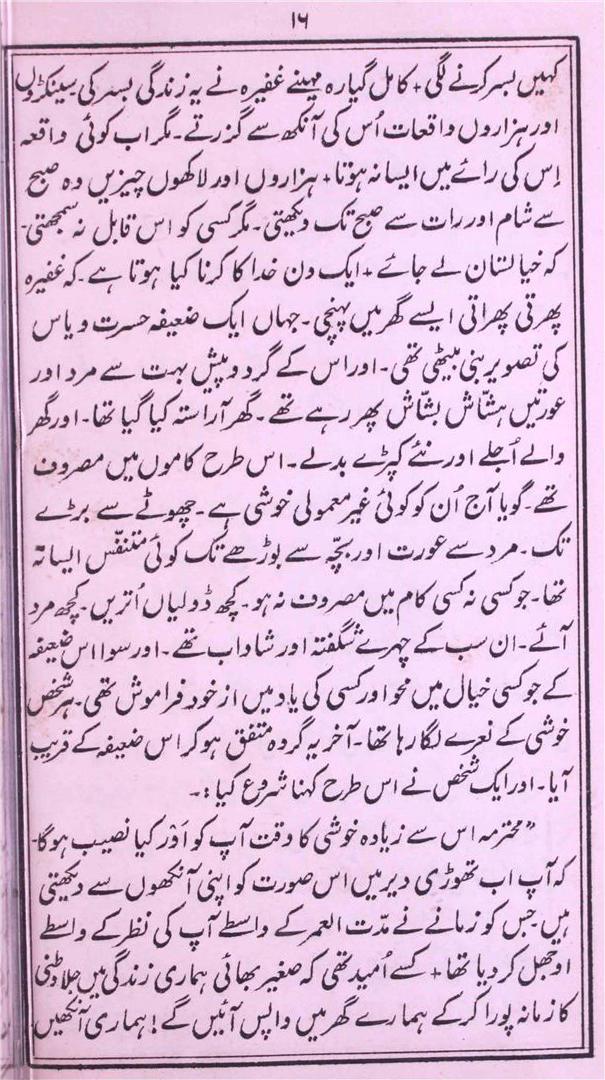 ۱۶
کہیں بسر کرنے لگی + کامل گیارہ مہینے غفیرہ نے یہ زندگی بسر کی سینکڑوں
اور ہزاروں واقعات اُس کی آنکھ سے گزرتے۔ مگر اب کوئی واقعہ
اِس کی رائے میں ایسا نہ ہوتا + ہزاروں اور لاکھوں چیزیں وہ صبح
سے شام اور رات سے صبح تک دیکھتی۔ مگر کسی کو اس قابل نہ سمجھتی۔
کہ خیالستان لے جائے + ایک دن خدا کا کرنا کیا ہوتا ہے۔ کہ غفیرہ
پھرتی پھراتی ایسے گھر میں پہنچی۔ جہاں ایک ضعیفہ حسرت و یاس
کی تصویر بنی بیٹھی تھی۔ اور اس کے گرد و پیش بہت سے مرد اور
عورتیں ہشّاش بشّاش پھر رہے تھے۔ گھر آراستہ کیا گیا تھا۔ اور گھر
والے اُجلے اور نئے کپڑے بدلے۔ اس طرح کاموں میں مصروف
تھے۔ گویا آج اُن کو کوئی غیر معمولی خوشی ہے۔ چھوٹے سے بڑے
تک۔ مرد سے عورت اور بچّہ سے بوڑھے تک کوئی متنفّس ایسا نہ
تھا۔ جو کسی نہ کسی کام میں مصروف نہ ہو۔ کچھ ڈولیاں اُتریں۔ کچھ مرد
آئے۔ ان سب کے چہرے شگفتہ اور شاداب تھے۔ اور سوا اس ضعیفہ
کے جو کسی خیال میں محو اور کسی کی یاد میں از خود فراموش تھی۔ ہر شخص
خوشی کے نعرے لگا رہا تھا۔ آخر یہ گروہ متفق ہو کر اس ضعیفہ کے قریب
آیا۔ اور ایک شخص نے اس طرح کہنا شروع کیا :۔
”محترمہ اس سے زیادہ خوشی کا وقت آپ کو اَوْر کیا نصیب ہوگا۔
کہ آپ اب تھوڑی دیر میں اس صورت کو اپنی آنکھوں سے دیکھتی
ہیں۔ جس کو زمانے نے مدّت العمر کے واسطے آپ کی نظر کے واسطے
اوجھل کر دیا تھا + کسے اُمید تھی کہ صغیر بھائی ہماری زندگی میں جلاوطنی
کا زمانہ پورا کر کے ہمارے گھر میں واپس آئیں گے! ہماری آنکھیں